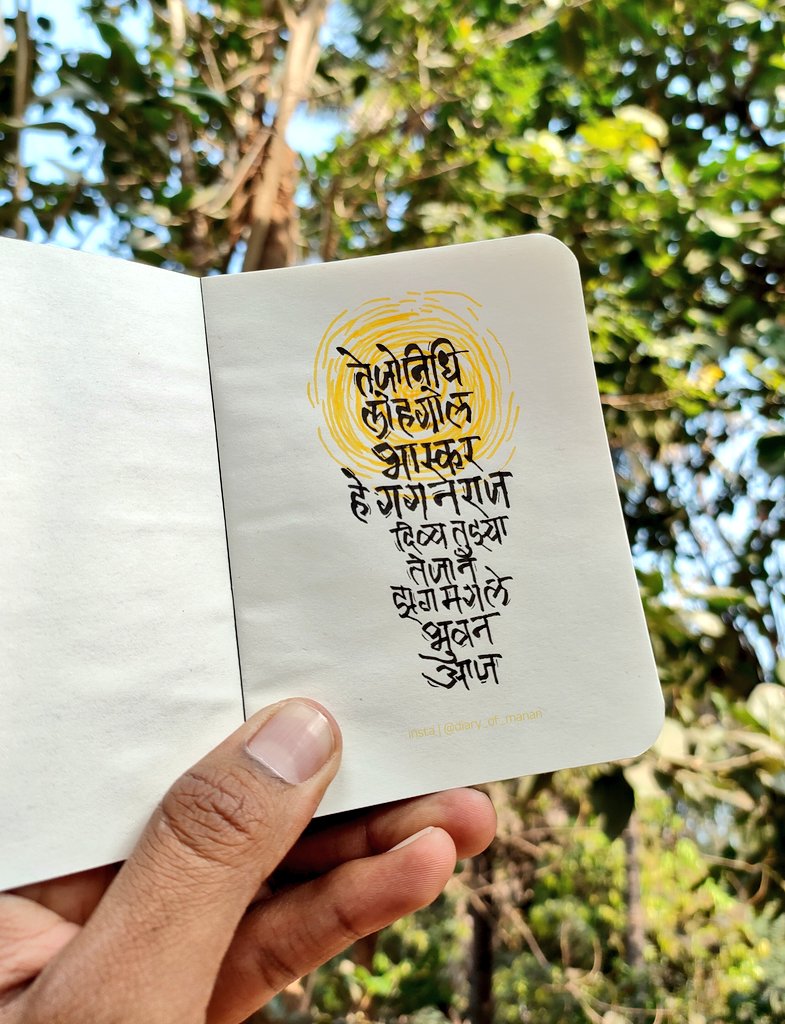 तेजोनिधि
लोहगोल
भास्कर
हे गगनराज
दिव्य तुझ्या
तेजानं
झगमगले
भुवन
आज
insta|@diary_of_manan